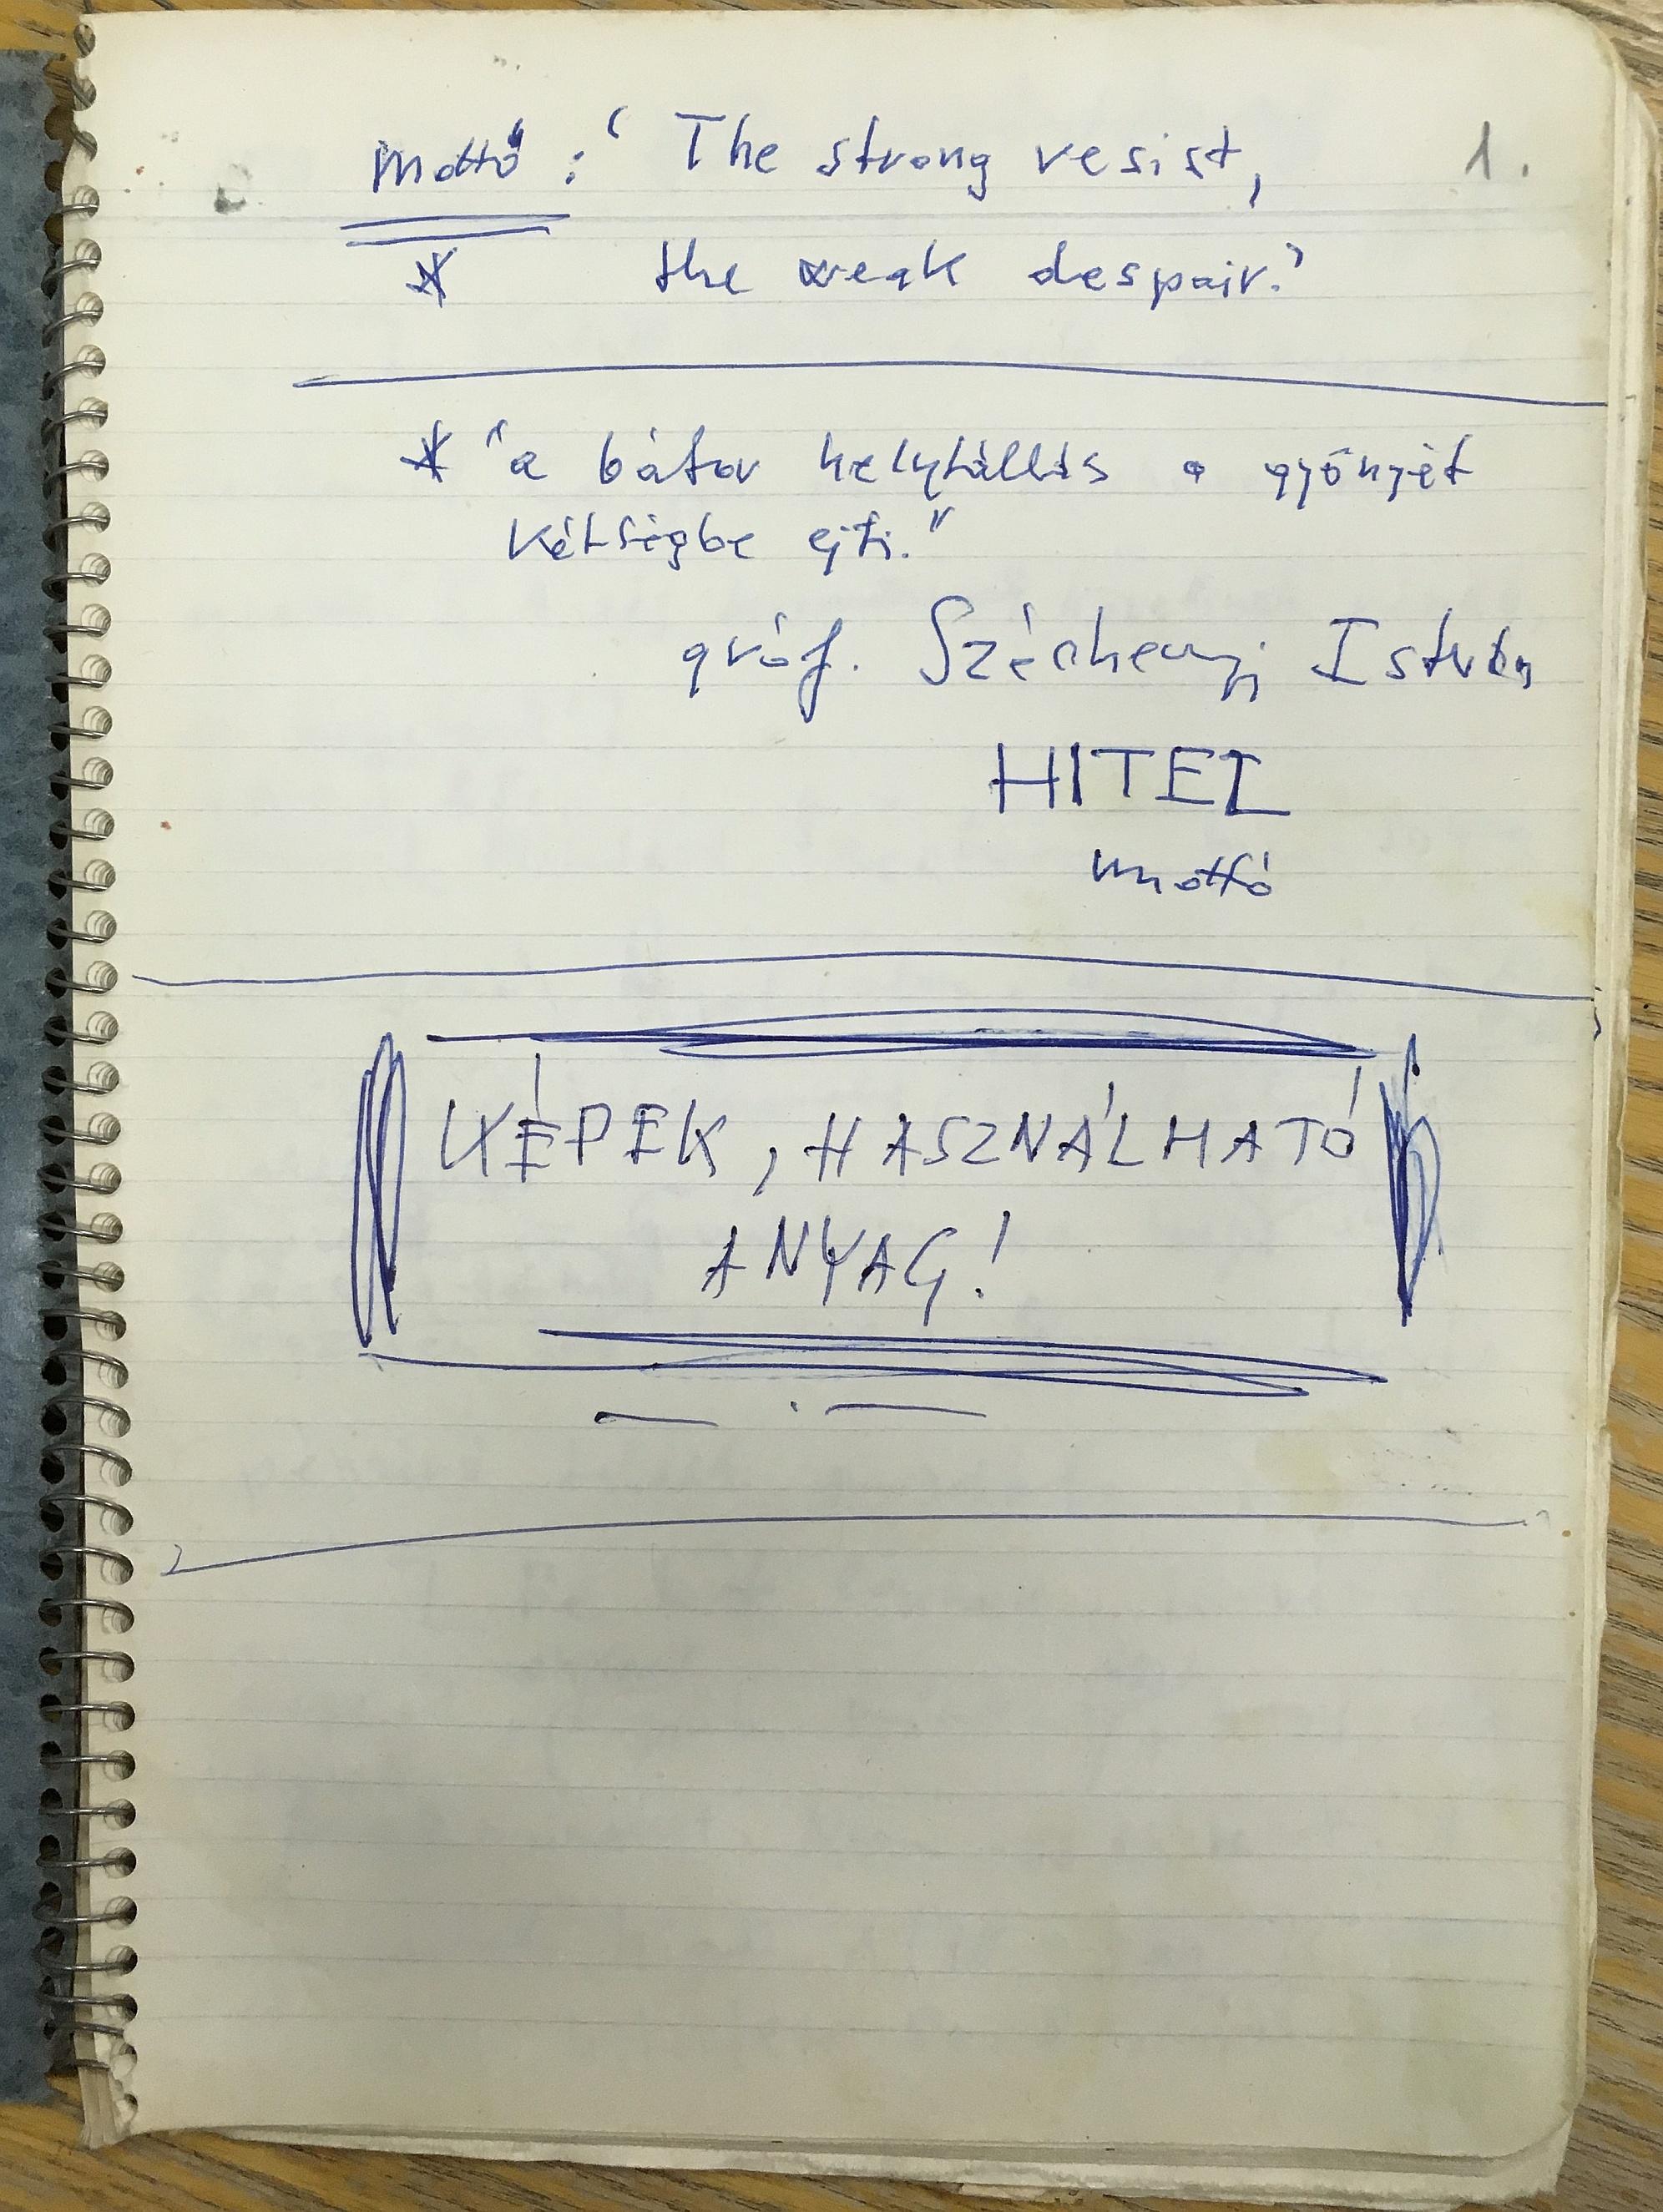 mottó: ‘The strong resist,
1.
* the weak despair.’
* “a bátor helytállás a gyöngét
kétségbe ejti.”
gróf. Széchenyi István
HITEL
mottó
KÉPEK, HASZNÁLHATÓ
ANYAG!